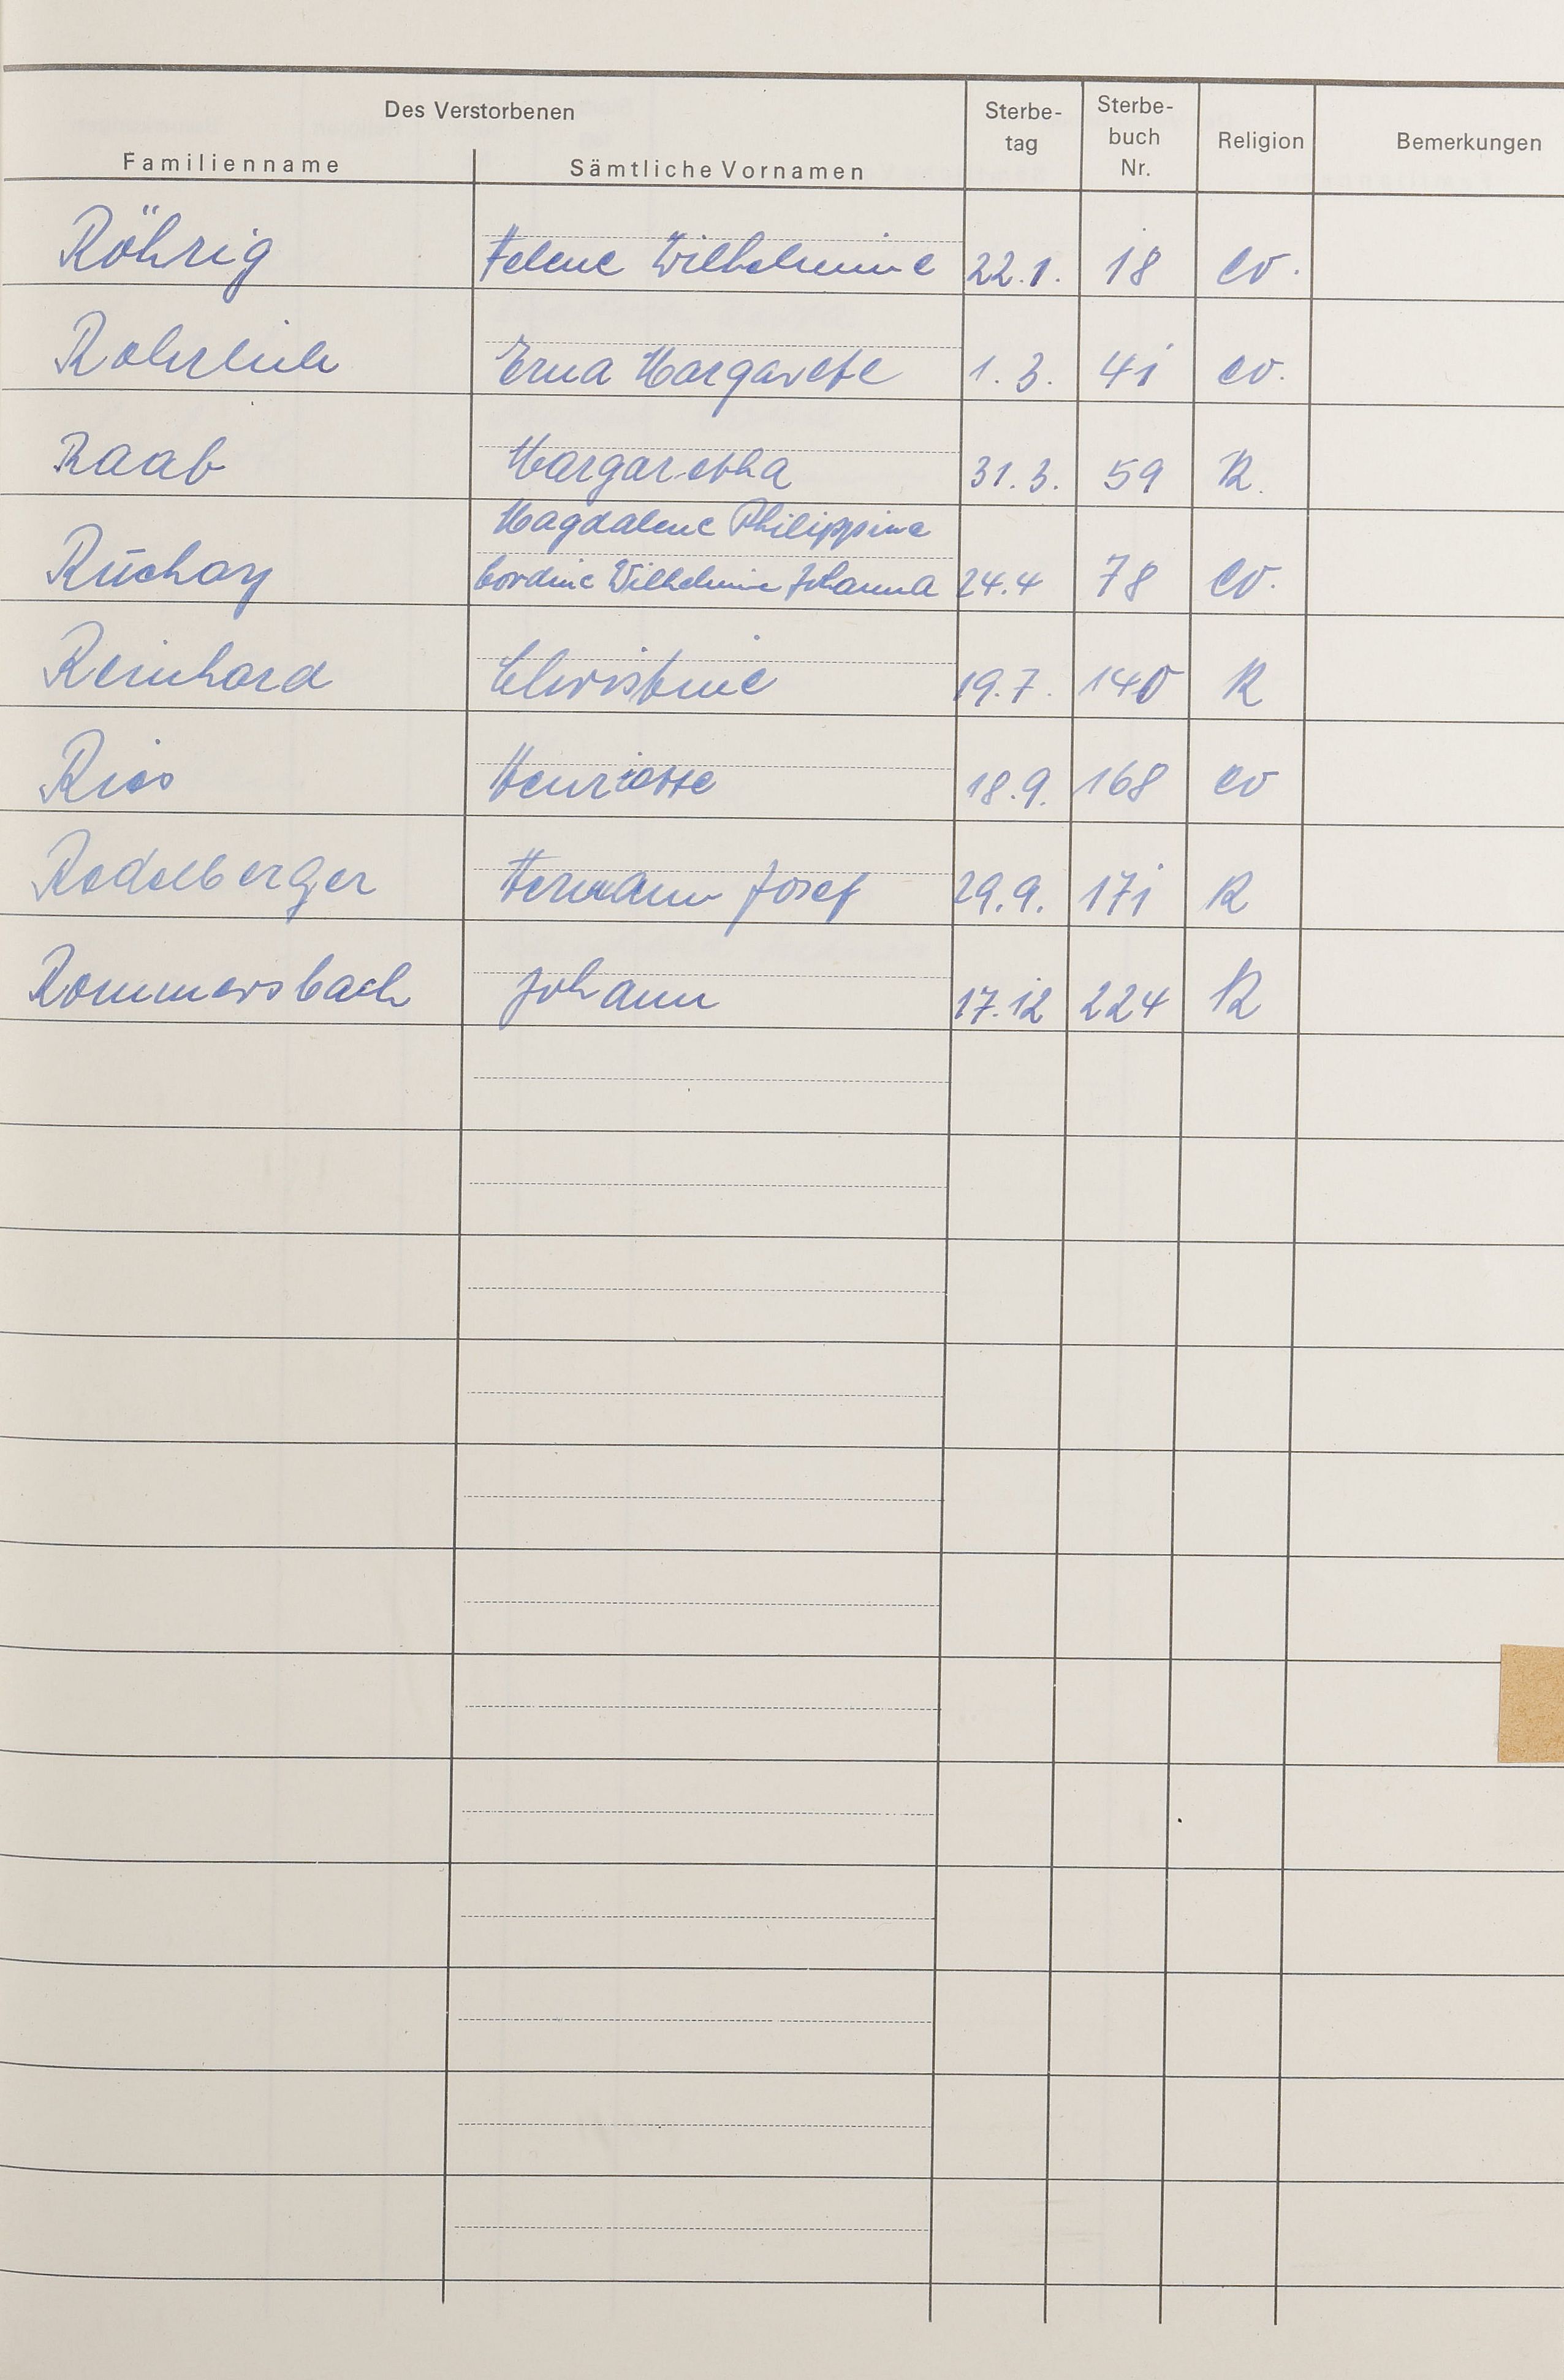 Des Verstorbenen
Familienname Sämtliche Vornamen Sterbe- tag Sterbe- buch Nr. Religion Bemerkungen
Röhrig Helene Wilhelmine 22.1. 18 ev.
Rohrlich Erna Margarete 1.3. 41 ev.
Raab Margaretha 31.3. 59 R.
Magdalene Philippine
Ruchay Cordine Wilhelmine Johanna 24.4 78 ev.
Reinhard Christine 19.7. 140 R
Ries Henriette 18.9. 168 ev
Redelberger Hermann Josef 29.9. 171 R
Rommersbach Johann 17.12 224 R